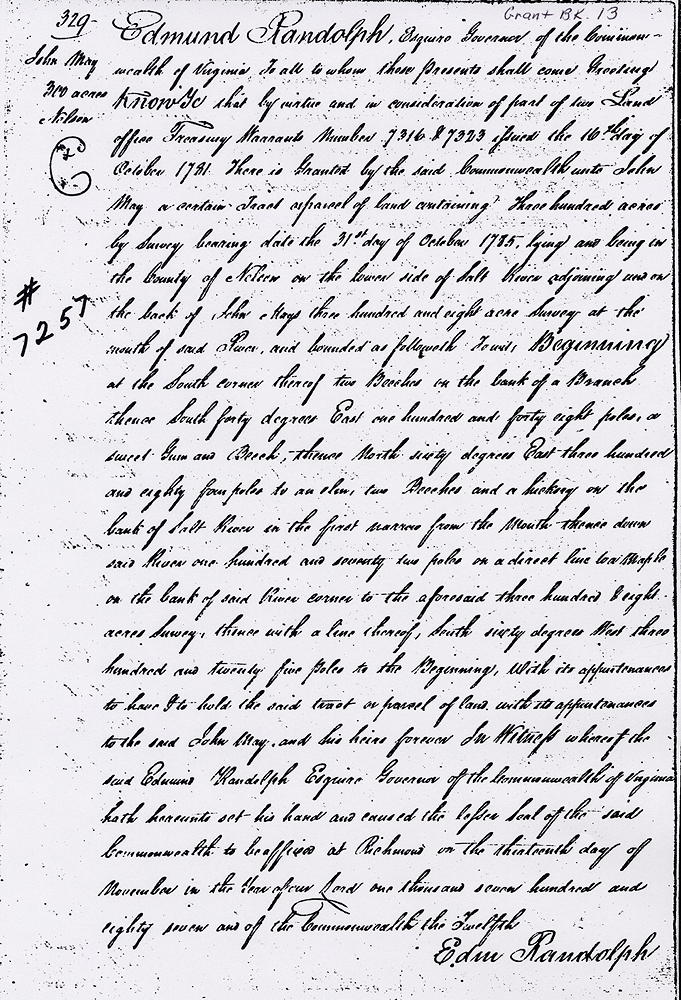 Grant BK. 13
329
John May
300 acres
Nelson
# 7257
Edmund Randolph, Esquire Governor of the Common-
wealth of Virginia To all to whom these Presents shall come Greeting
Know Ye that by virtue and in consideration of part of two Land
office Treasury Warrants Number 7316 & 7323 issued the 16th day of
October 1781. There is Granted by the said Commonwealth unto John
May a certain Tract or parcel of land containing Three hundred acres
by Survey bearing date the 31st day of October 1785 lying and being in
the County of Nelson on the lower side of Salt River adjoining and on
the back of John Mays three hundred and eight acre Survey at the
mouth of said River, and bounded as followeth Towit, Beginning
at the South corner thereof two Beeches on the bank of a Branch
thence South forty degrees East one hundred and forty eight poles, a
sweet Gum and Beech, thence North sixty degrees East three hundred
and eighty four poles to an elm, two Beeches and a hickory on the
bank of Salt River in the first narrow from the Mouth thence down
said River one hundred and seventy two poles on a direct line to a Maple
on the bank of said River corner to the aforesaid three hundred & eight
acres Survey, thence with a line thereof, South sixty degrees West three
hundred and twenty five Poles to the Beginning, With its appurtenances
to have & to hold the said tract or parcel of land with its appurtenances
to the said John May, and his heirs forever In Witness whereof the
said Edmund Randolph Esquire Governor of the Commonwealth of Virginia
hath hereunto set his hand and caused the lesser Seal of the said
Commonwealth to be affixed at Richmond on the thirteenth day of
November in the Year of our Lord one thousand seven hundred and
eighty seven and of the Commonwealth the Twelfth
Edm Randolph